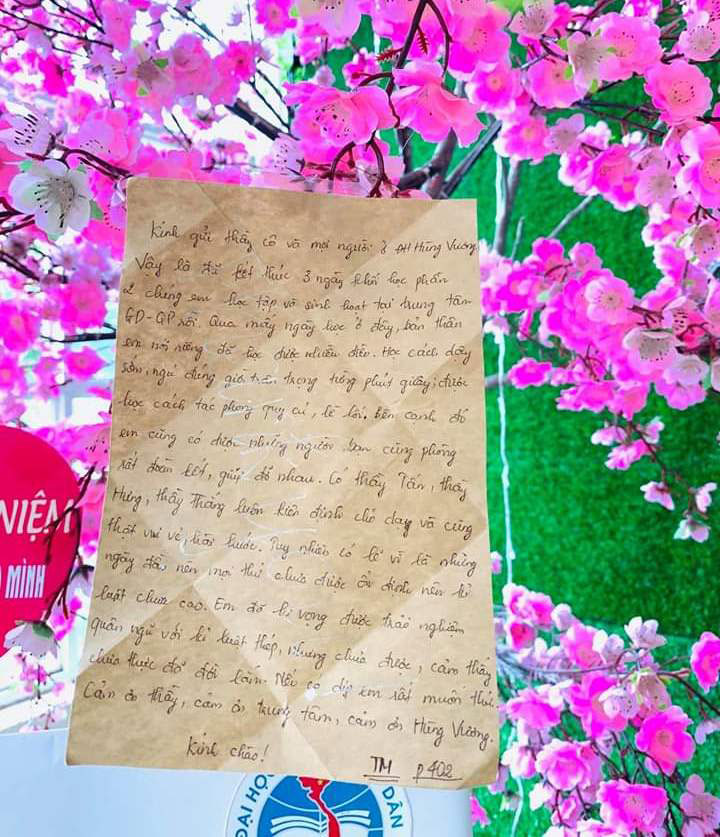 Kính gửi thầy cô và mọi người ở ĐH Hùng Vương
Vậy là đã kết thúc 3 ngày khởi học phần
2 chúng em học tập và sinh hoạt tại trung tâm
GD-QP rồi. Qua mấy ngày học ở đây, bản thân
em nói riêng đã học được nhiều điều. Học cách dậy
sớm, ngủ đúng giờ, trân trọng từng phút giây; được
học cách tác phong quy củ, lề lối, bên cạnh đó
em cũng có được những người bạn cùng phòng
rất đoàn kết, giúp đỡ nhau. Có thầy Tấn, thầy
Hưng, thầy Thắng luôn kiên định chỉ dạy và cũng
thật vui vẻ, hài hước. Tuy nhiên có lẽ vì là những
ngày đầu nên mọi thứ chưa được ổn định nên kỉ
luật chưa cao. Em đã hi vọng được trải nghiệm
quân ngũ với kỉ luật thép, nhưng chưa được, cảm thấy
chưa thực đã đời lắm. Nếu có dịp em rất muốn thử.
Cảm ơn thầy, cảm ơn trung tâm, cảm ơn Hùng Vương.
Kính chào!
TM P402
NIỆM
MÌNH
ĐẠI HỌC DÂN